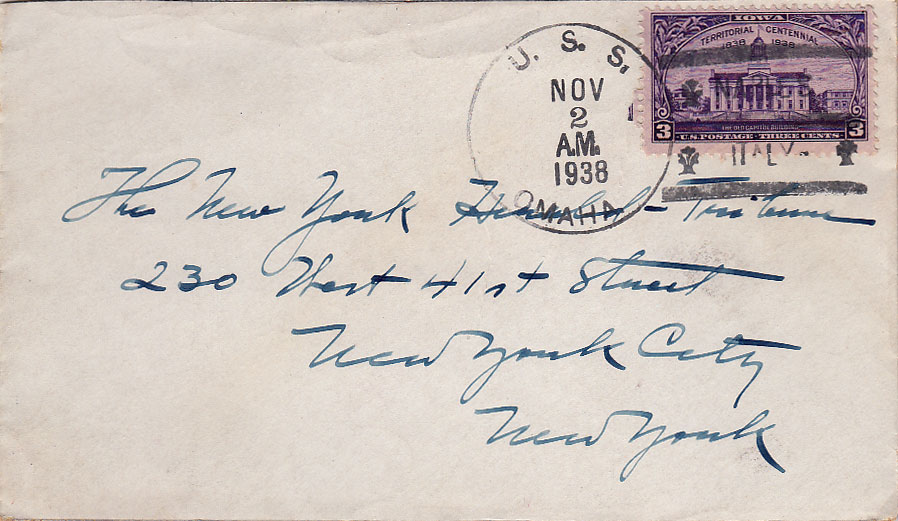 U. S. S.
NOV
2
A.M.
1938
OMAHA
IOWA
TERRITORIAL CENTENNIAL
1838 1938
NAPLES
THE OLD CAPITOL BUILDING
3 U.S. POSTAGE · THREE CENTS 3
ITALY
The New York Herald-Tribune
230 West 41st Street
New York City
New York